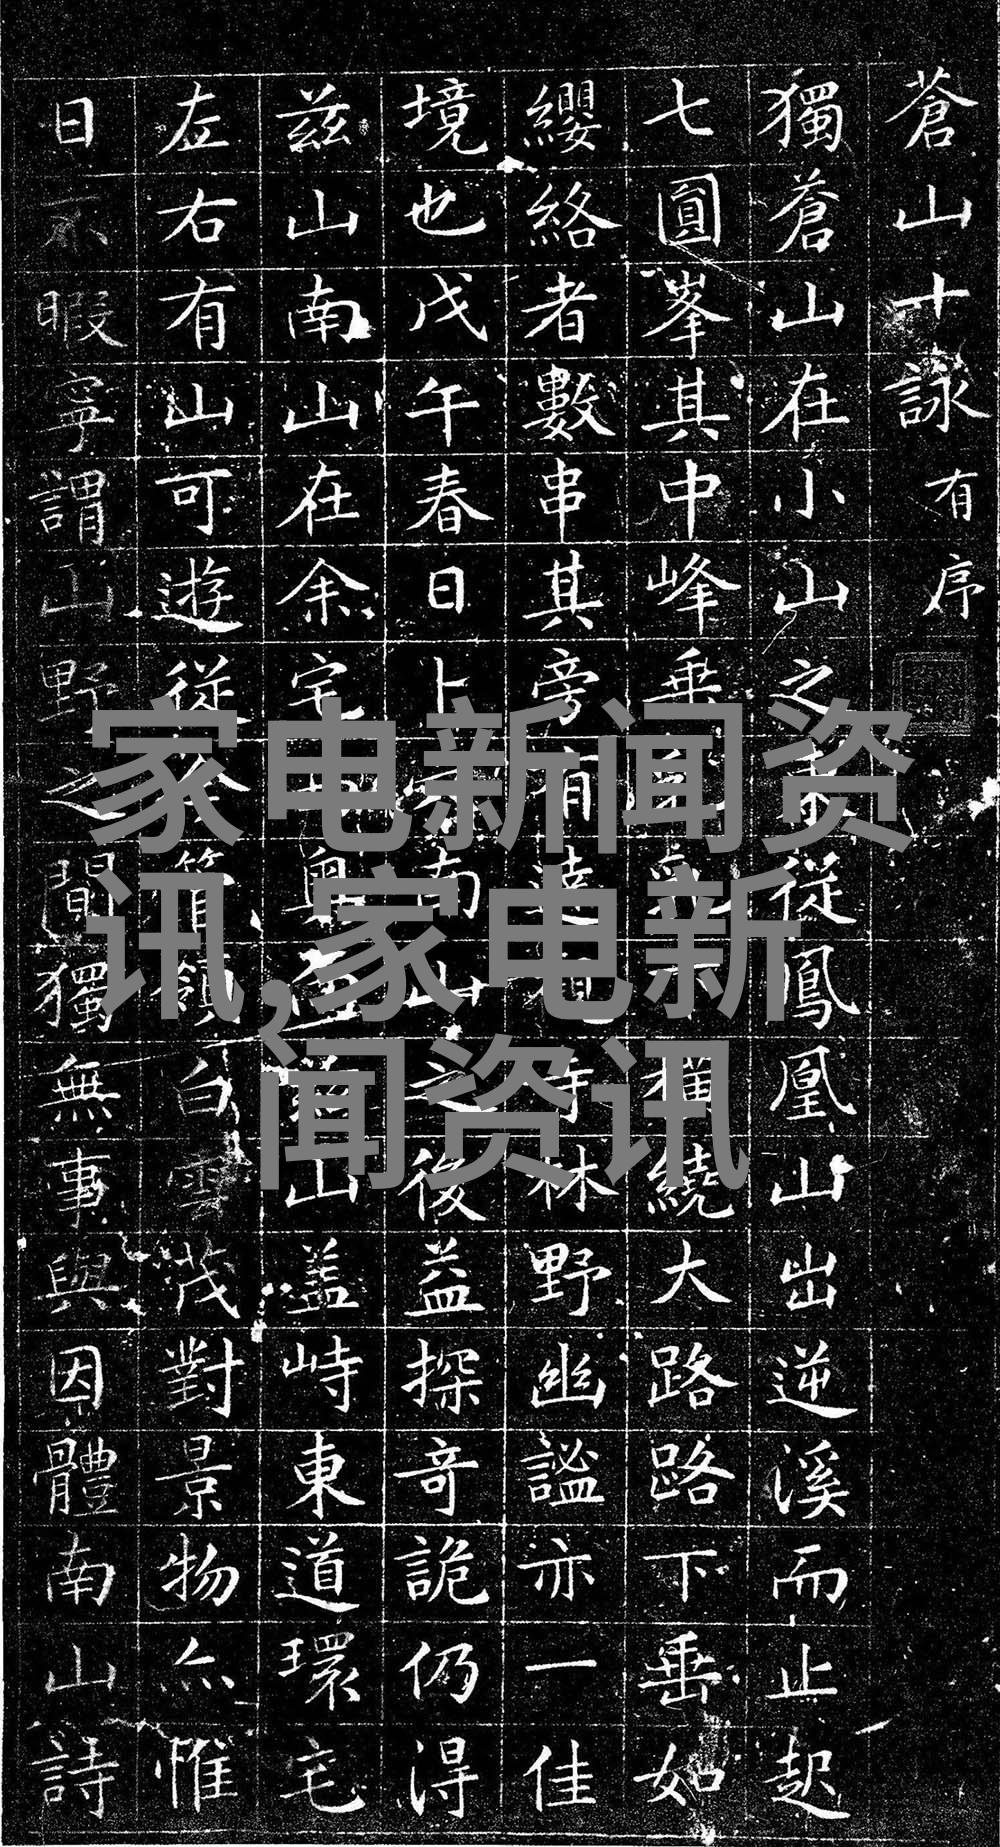 蒼山十詠 有序
獨蒼山在小山之從鳳凰山出逆溪而止起
七圓峯其中峰垂橫繞大路路下垂如
纓絡者數串其旁有寺林野幽謐亦一佳
境也戊午春日卜南山之後益探奇詭仍得
茲山南山在余宅山蓋峙東道環宅
左右有山可遊從嶺白雲茂對景物亦惟
日不暇寧謂山野之間獨無事與因體南山詩
家电新闻资
讯,家电新
闻资讯